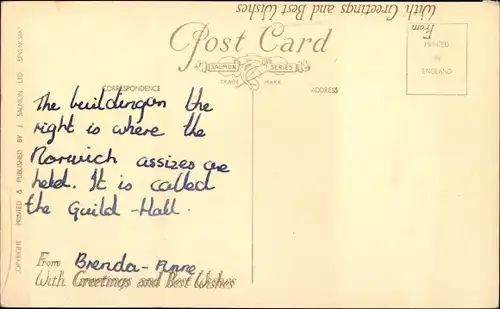 With Greetings and Best Wishes
From
Post Card
SALMON SERIES
TRADE MARK
PRINTED
IN
ENGLAND
CORRESPONDENCE
ADDRESS
The building on the
right is where the
Norwich assizes are
held. It is called
the Guild-Hall.
From Brenda-Anne
With Greetings and Best Wishes
COPYRIGHT PRINTED & PUBLISHED BY J. SALMON LTD SEVENOAKS